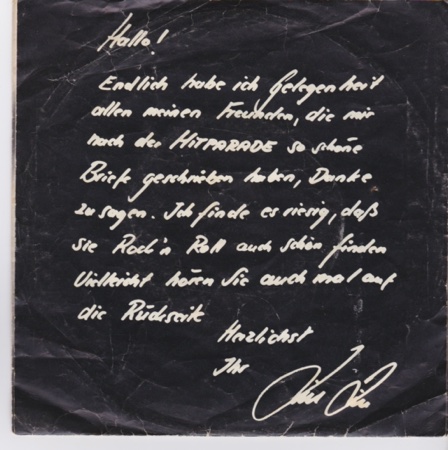 Hallo!
Endlich habe ich Gelegenheit
allen meinen Freunden, die mir
nach der HITPARADE so schöne
Briefe geschrieben haben, Danke
zu sagen. Ich finde es riesig, daß
sie Rock'n Roll auch schön finden
Vielleicht hören Sie auch mal auf
die Rückseite
Herzlichst
Ihr